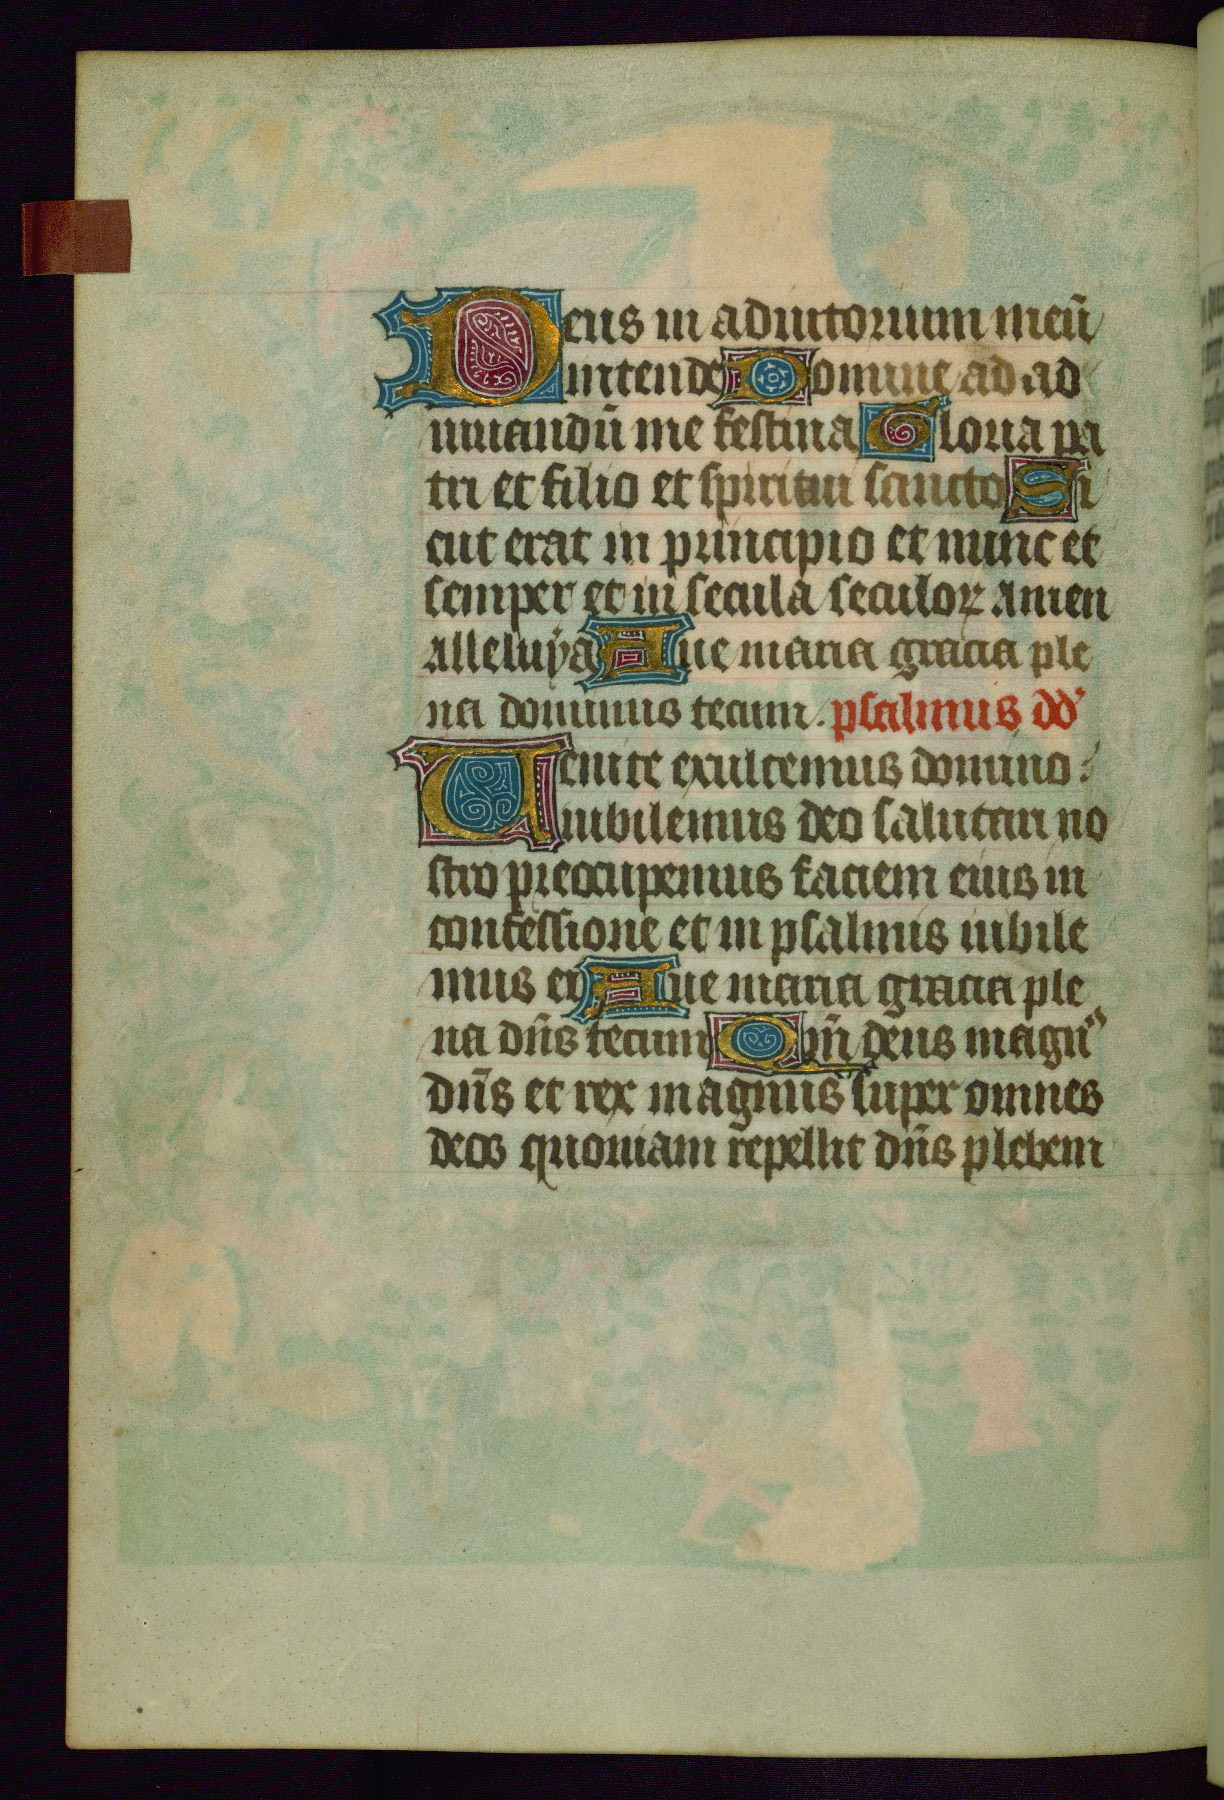 Deus in adiutorium meū
intende Domine ad ad
iuuandū me festina Gloria pa
tri et filio et spiritui sancto Si
cut erat in principio et nunc et
semper et in secula seculoꝝ amen
alleluÿa Aue maria gracia ple
na dominus tecum. psalmus dd'
Uenite exultemus domino:
iubilemus deo salutari no
stro preoccupemus faciem eius in
confessione et in psalmis iubile
mus ei Aue maria gracia ple
na dn̄s tecum Qm̄ deus magn᾽
dn̄s et rex magnus super omnes
deos quoniam repellit dn̄s plebem